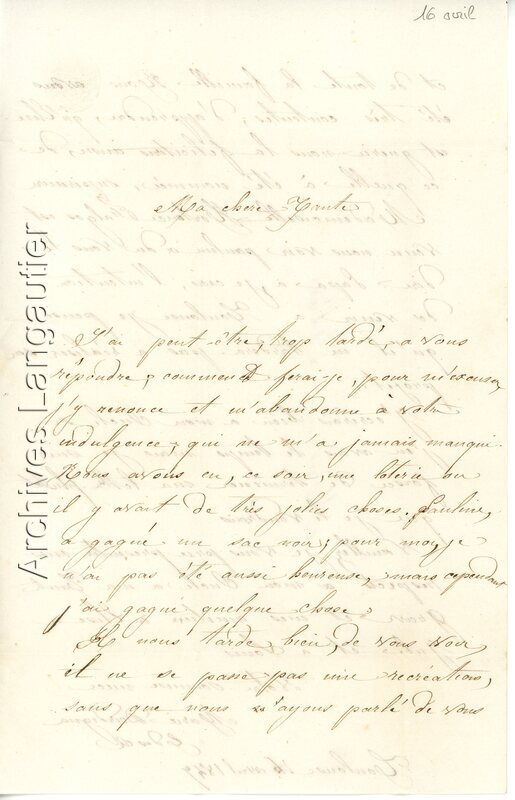 16 avril
Ma chère Tante
J'ai peut être, trop tardé, a vous
répondre; comment ferai-je, pour m'excuser,
j'y renonce et m'abandonne à votre
indulgence, qui ne m'a jamais manqué.
Nous avons eu, ce soir, une loterie ou
il y avait de très jolies choses. Pauline,
a gagné un sac noir; pour moi, je
n'ai pas été aussi heureuse, mais cependant
j'ai gagné quelque chose.
Il nous tarde bien, de vous voir
il ne se passe pas une recréation,
sans que nous n'ayons parlé de vous
Archives Langautier